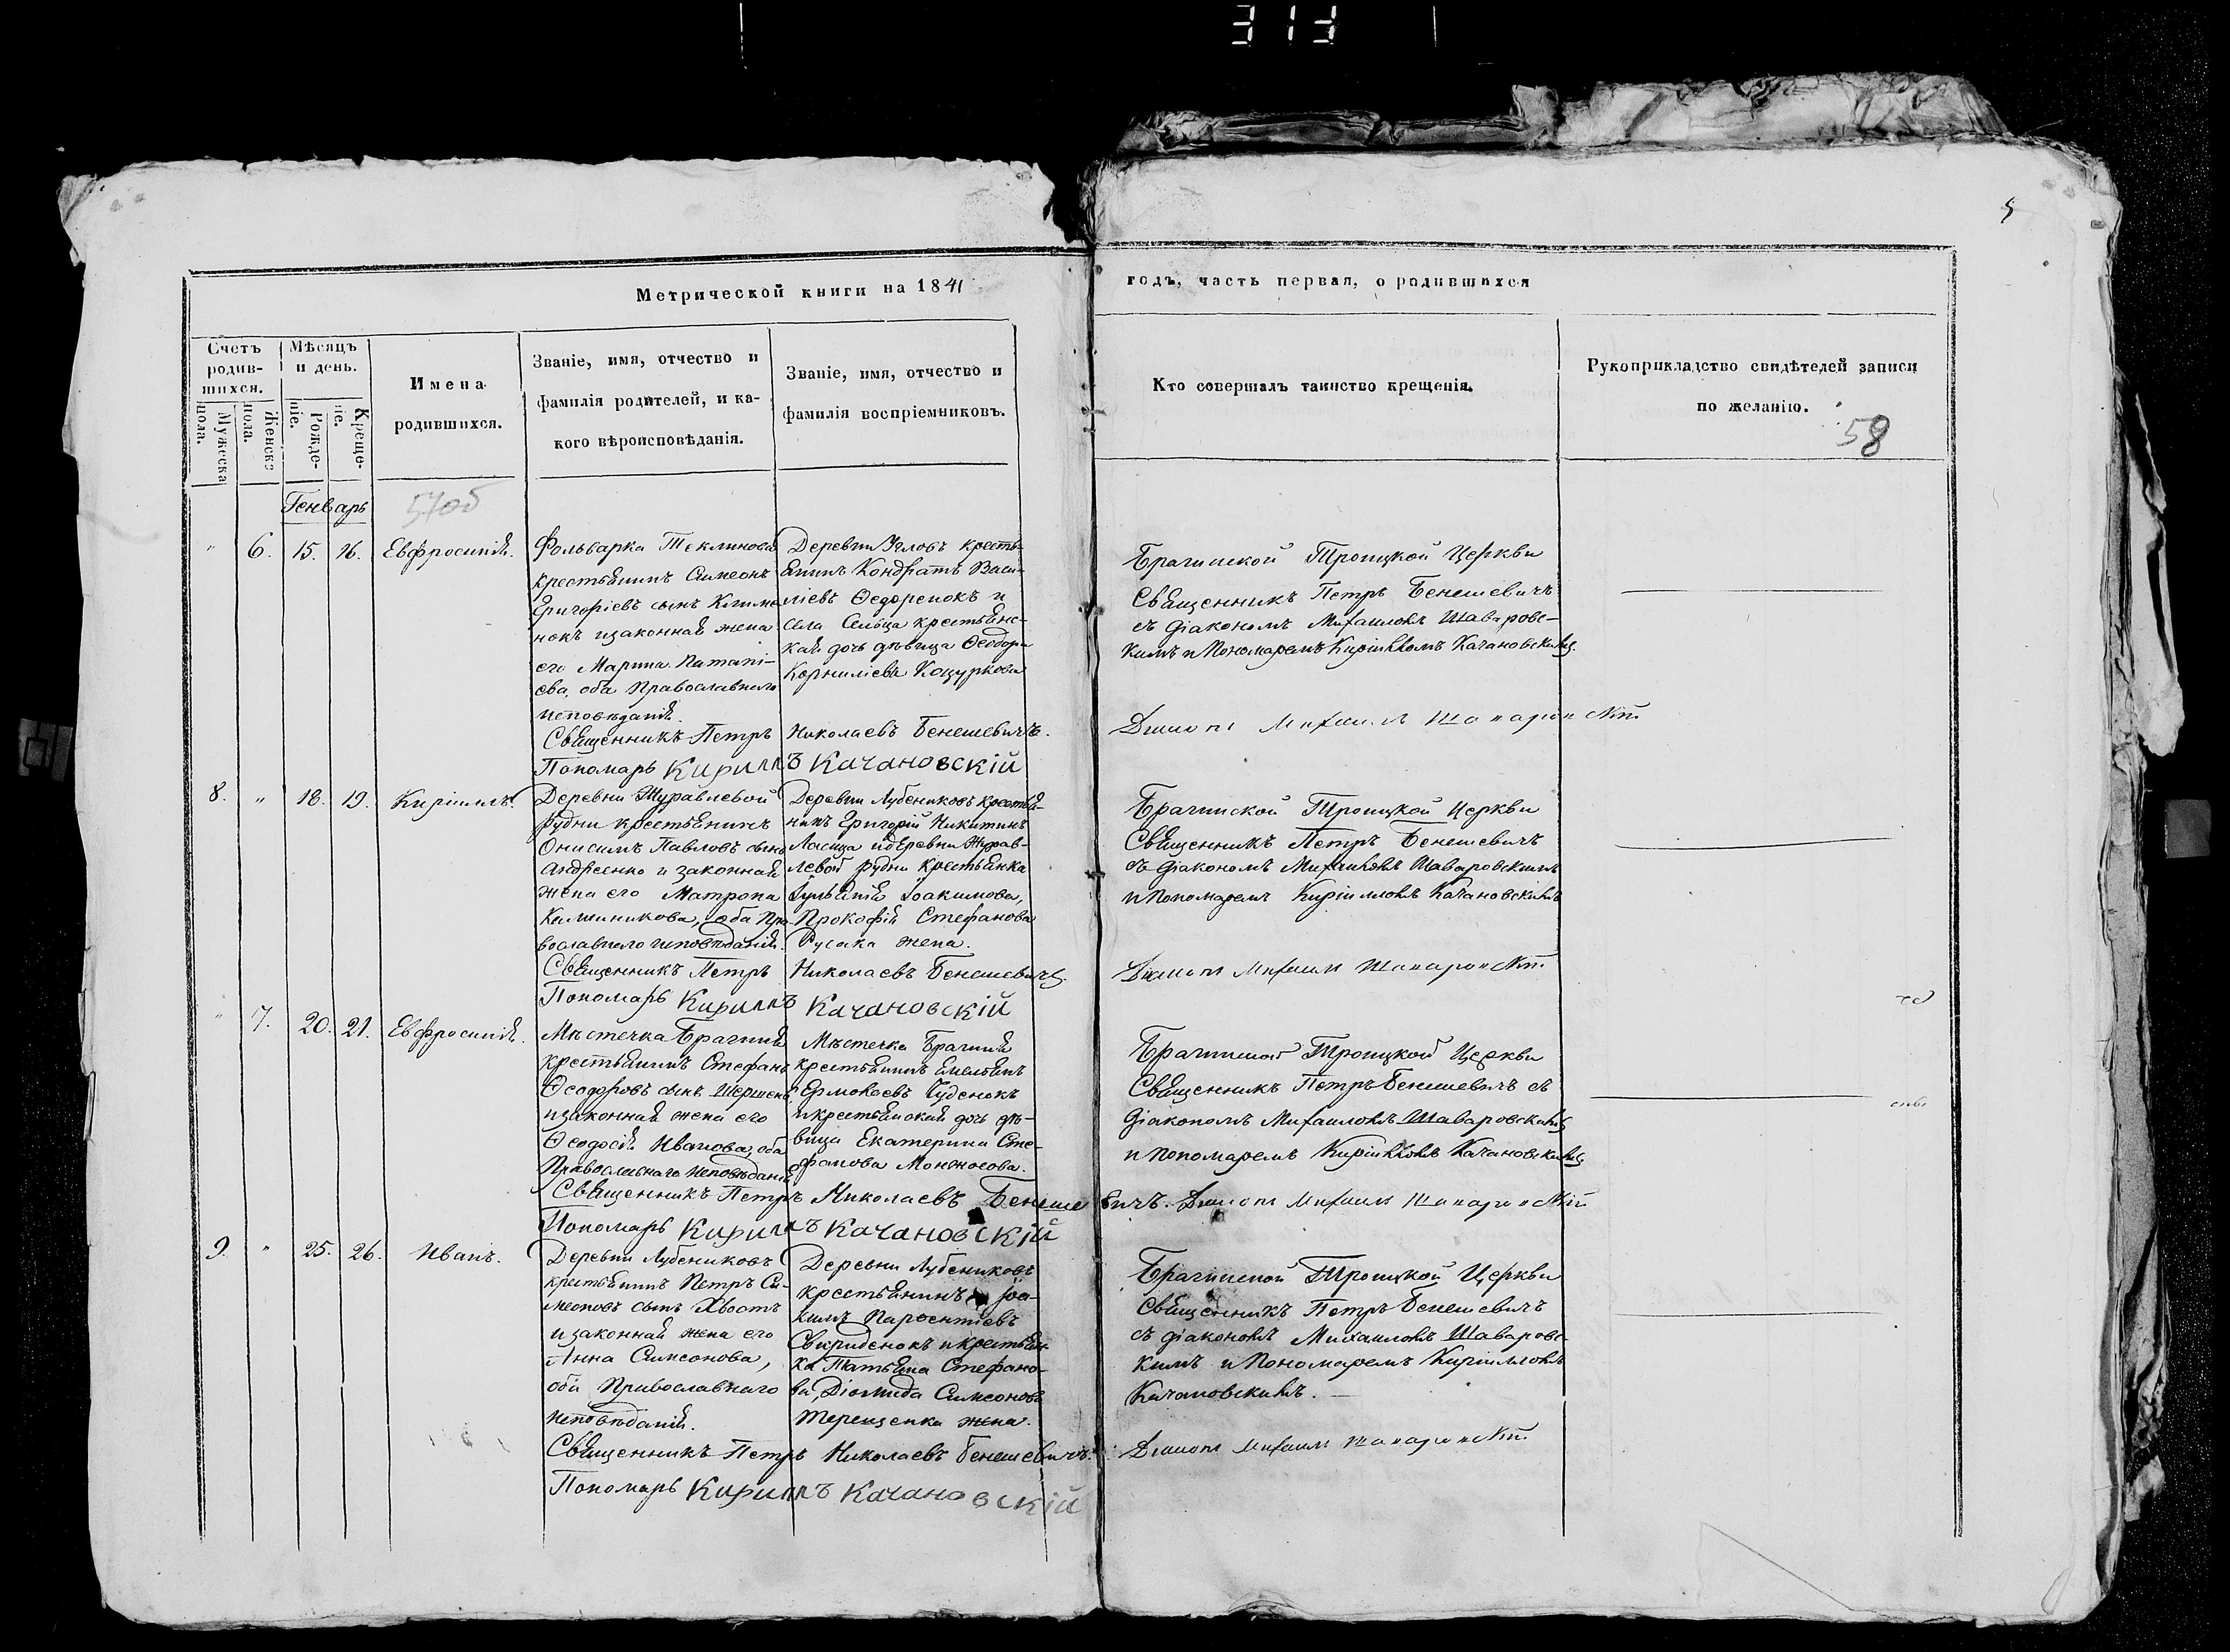 313
5
Метрической книги на 1841
годъ, часть первая, о родившихся
Счетъ
родив-
шихся.
Мѣсяцъ
и день.
Мужеска
пола.
Женска
пола.
Рожде-
ніе.
Креще-
ніе.
Имена
родившихся.
Званіе, имя, отчество и
фамилія родителей, и ка-
кого вѣроисповѣданія.
Званіе, имя, отчество и
фамилія воспріемниковъ.
Кто совершалъ таинство крещенія.
Рукоприкладство свидѣтелей записи
по желанію.
58
Генварь
570б
" 6. 15. 16. Евфросинія.
Фольварка Теклинова
крестьянинъ Симеонъ
Григоріевъ сынъ Климе
нокъ изаконная жена
его Марина
ева, оба Православнаго
исповѣданія.
Деревни Угловъ кресть-
янинъ Кондратъ Васи-
ліевъ Ѳедоренокъ и
села Сельца крестьянс-
кая дочь дѣвица Ѳеодора
Корниліева Коцуркова
Брагинской Троицкой Церкви
Священникъ Петръ Бенешевичъ
съ Діакономъ Михаиломъ Шаваровс-
кимъ и Пономаремъ Кирилломъ Качановскимъ
Священникъ Петръ Николаевъ Бенешевичъ.
Діаконъ Михаилъ Шаваровскій
Пономарь Кириллъ Качановскій
8. " 18. 19. Кириллъ.
Деревни Журавлевой
Рудни крестьянинъ
Онисимъ Павловъ сынъ
Андреенко и законная
жена его Матрона
Калиникова, оба Пра-
вославнаго исповѣданія.
Деревни Лубениковъ крестья-
нинъ Григорій Никитинъ
Ласица идеревни Журав-
левой Рудни крестьянка
Іуліанія Іоакимова,
Прокофія Стефанова
Русака жена.
Брагинской Троицкой Церкви
Священникъ Петръ Бенешевичъ
съ Діакономъ Михаиломъ Шаваровскимъ
и Пономаремъ Кирилломъ Качановскимъ
Священникъ Петръ Николаевъ Бенешевичъ.
Діаконъ Михаилъ Шаваровскій
Пономарь Кириллъ Качановскій
" 7. 20. 21. Евфросинія.
Мѣстечка Брагиня
крестьянинъ Стефанъ
Ѳеодоровъ сынъ
изаконная жена его
Ѳеодосія Иванова, оба
Православнаго исповѣданія
Мѣстечка Брагиня
крестьянинъ Емельянъ
Ермолаевъ
икрестьянская дочь дѣ-
вица Екатерина Сте-
фанова
Брагинской Троицкой Церкви
Священникъ Петръ Бенешевичъ съ
Діакономъ Михаиломъ Шаваровскимъ
и Пономаремъ Кирилломъ Качановскимъ
Священникъ Петръ Николаевъ Бенешевичъ. Діаконъ Михаилъ Шаваровскій
Пономарь Кириллъ Качановскій
9. " 25. 26. Иванъ.
Деревни Лубениковъ
крестьянинъ Петръ Си-
меоновъ сынъ Хвостъ
изаконная жена его
Анна Симеонова,
оба Православнаго
исповѣданія.
Деревни Лубениковъ
крестьянинъ Іоа-
кимъ Пароентіевъ
Свириденокъ икрестьян-
ка Татьяна Стефано-
ва, Діомида Симеонова
Терещенка жена.
Брагинской Троицкой Церкви
Священникъ Петръ Бенешевичъ
съ діакономъ Михаиломъ Шаваровс-
кимъ и Пономаремъ Кирилломъ
Качановскимъ.
Священникъ Петръ Николаевъ Бенешевичъ.
Діаконъ Михаилъ Шаваровскій
Пономарь Кириллъ Качановскій